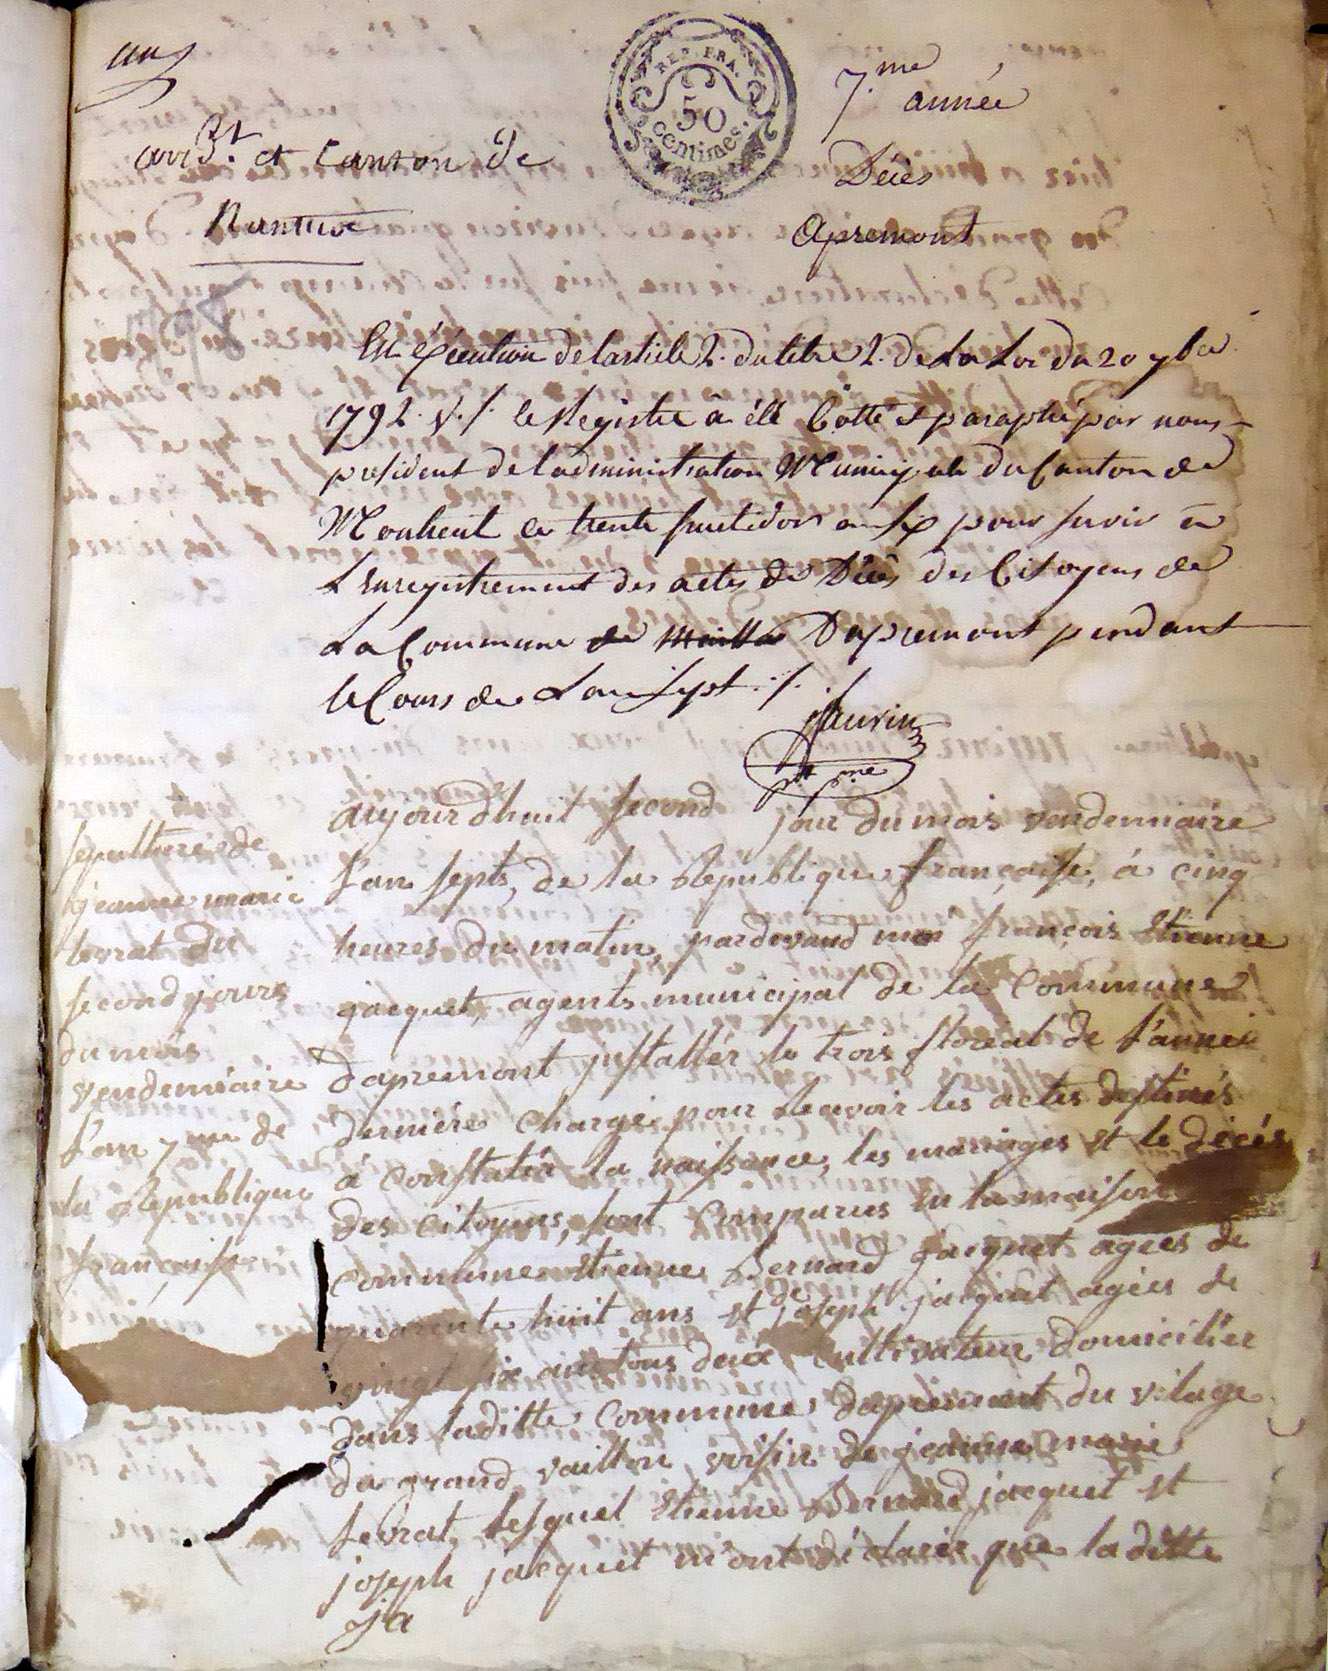 un
arrdt. et canton de
Nantua
REP. FRA.
50
centimes.
7.me
année
Décès
Apremont
En Exécution de larticle 2. du titre 2. de La Loi du 20 7bre
1792. v. s. le Registre a été Cotté et paraphé par nous
président de l'administration Municipale du Canton de
Montreal le trente fructidor an six pour servir a
L'enregistrement des actes de Décès des Citoyens de
La Commune de Dapremont pendant
le Cours de Lan sept ./.
aujourdhuit second jour du mois vendemiaire
l'an septs, de la Republique française, á cinq
heures du matin, pardevand moi françois Etienne
jacquet, agents municipal de la Commune
dapremont jnstallér le trois floréal de l'année
derniére chargé pour Recevoir les actes destinés
á constatér la naissance, les mariages et le décés
des citoyens, sont Comparus en la maison
commune Etienne Bernard jacquet agées de
quarente huit ans et de joseph jacquet agées de
vingt six ans tous deux cultivateur domiciliér
dans laditte Commune daprémont du vilage
du grand vaillon, voisin de jeanne marie
levrat, lesquel Etienne Bernard jacquet et
joseph jacquet m'ont déclarér que laditte
ja
sepulture de
jeanne marie
levrat du
second jours
du mois
vendemiaire
l'an 7me de
la Republique
française